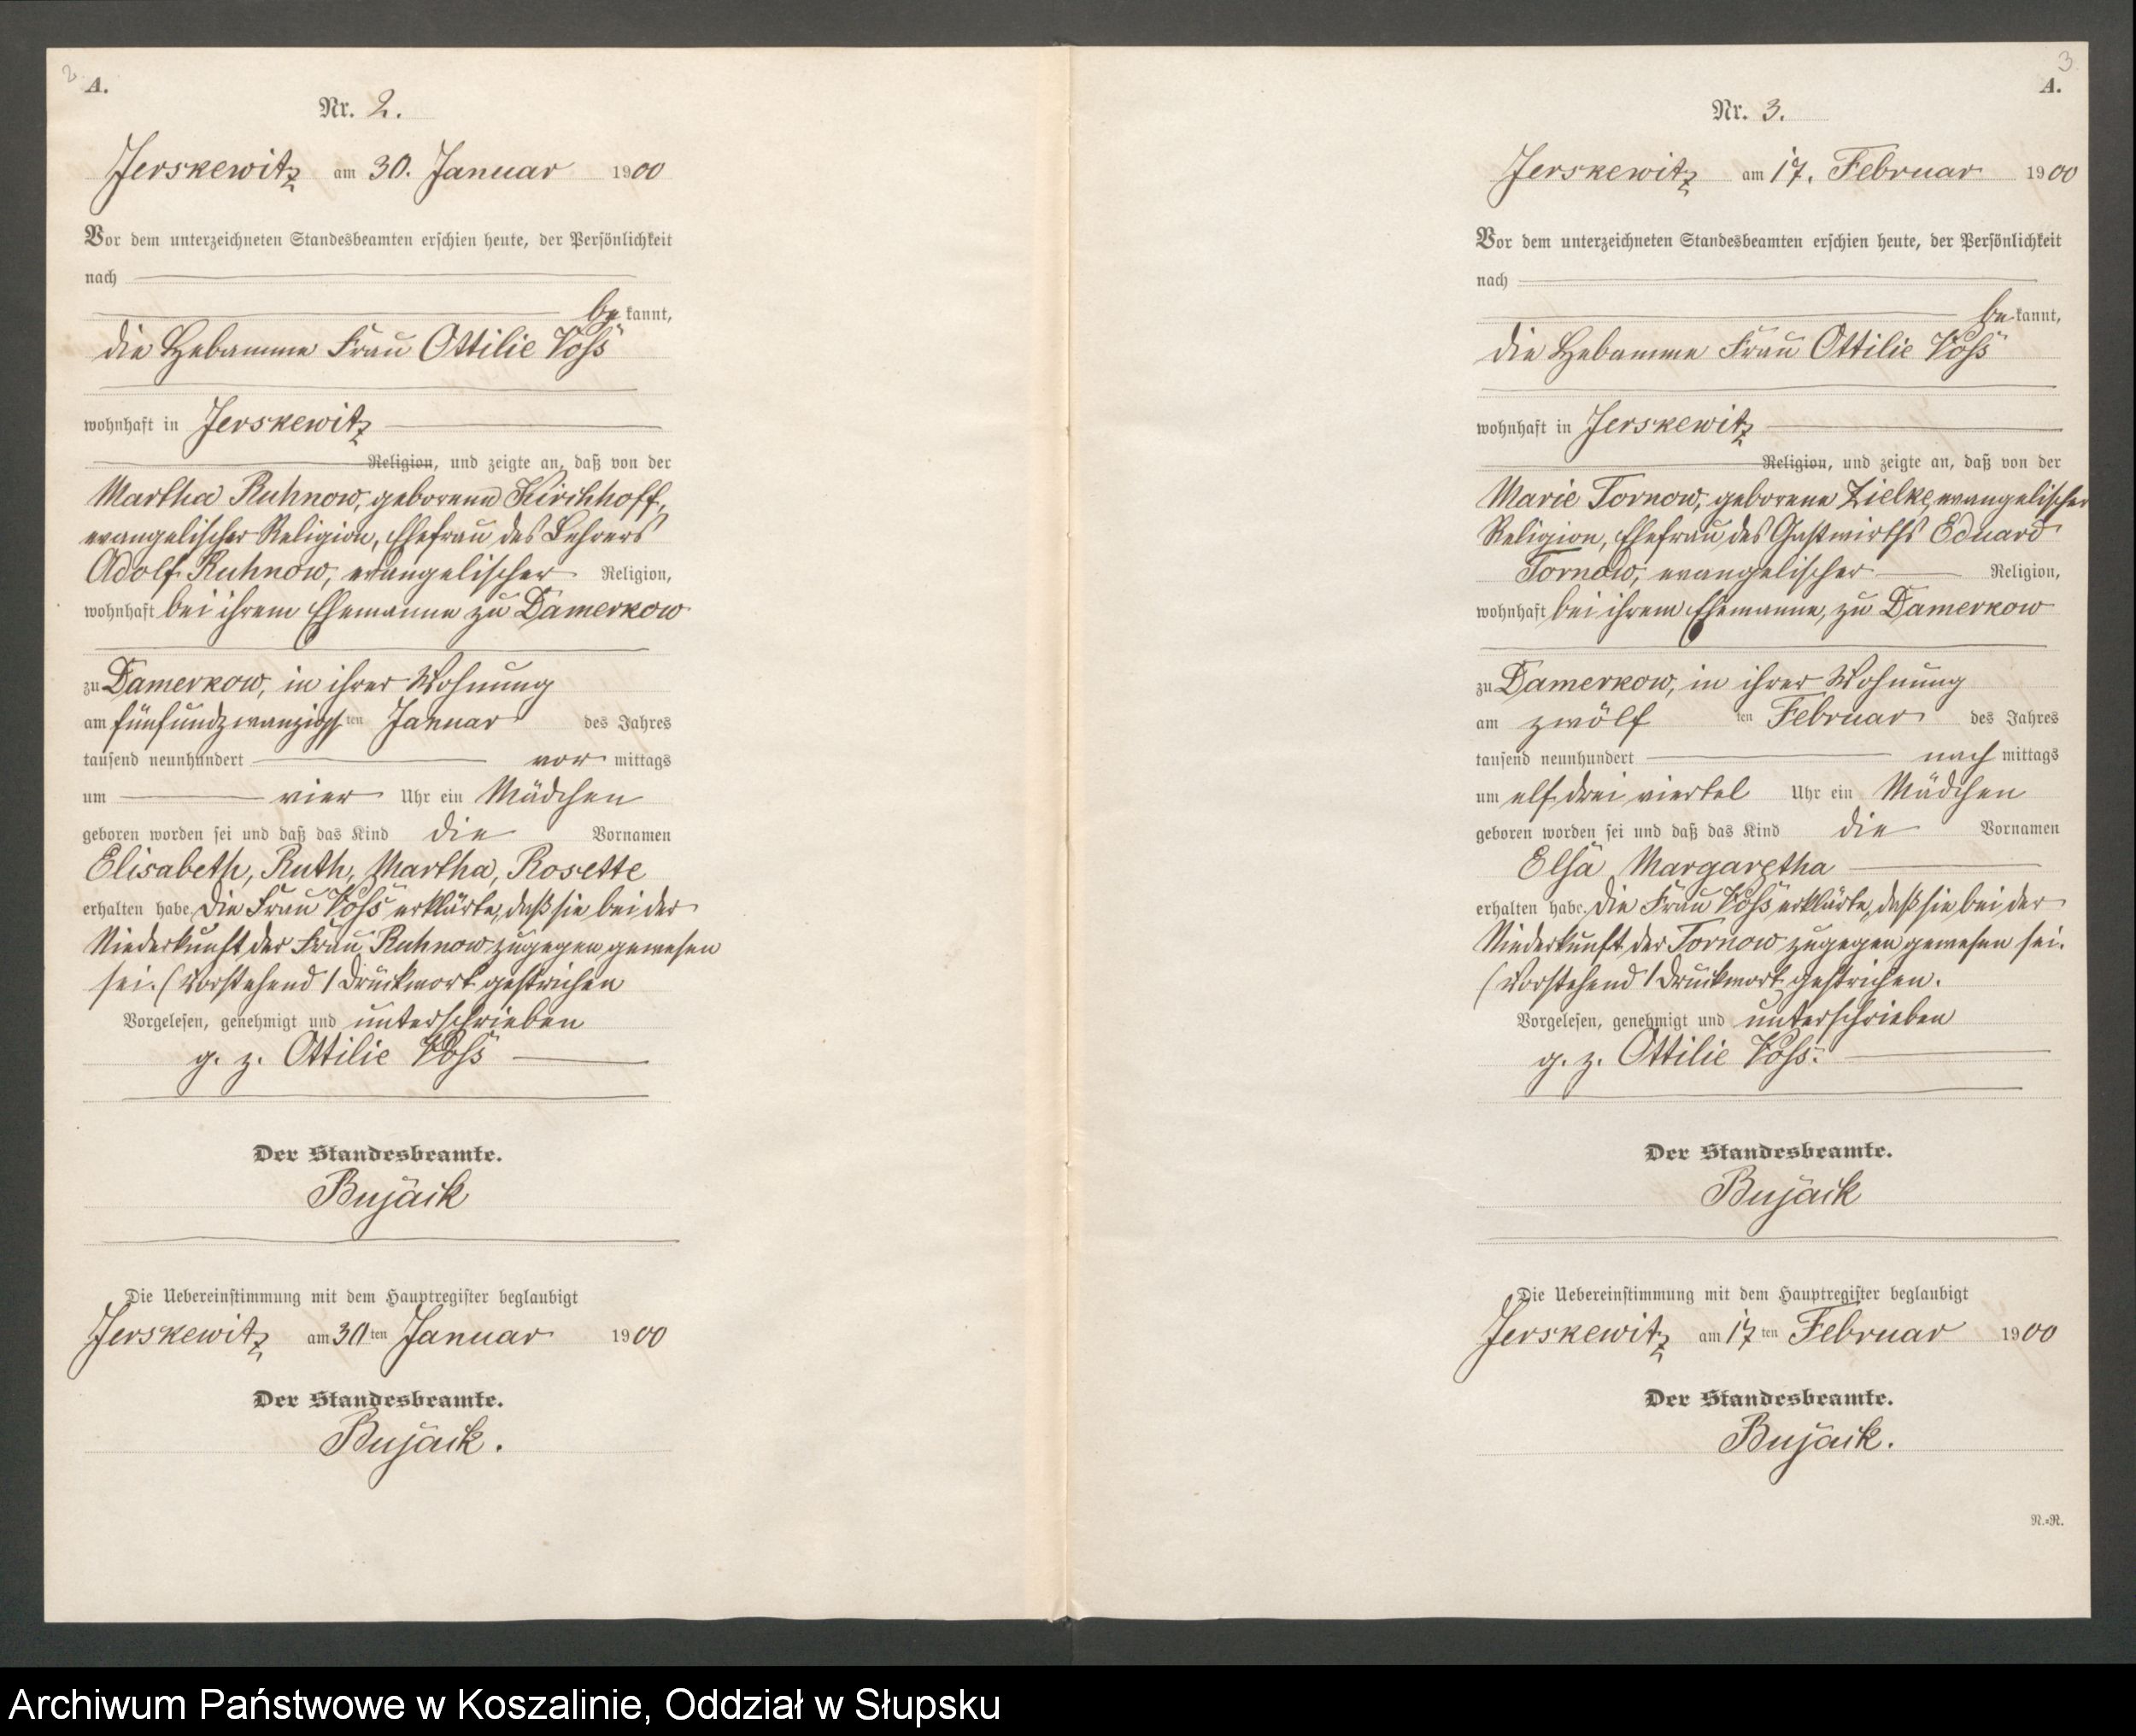 2
A.
Nr. 2.
Jerskewitz am 30. Januar 1900
Vor dem unterzeichneten Standesbeamten erschien heute, der Persönlichkeit
nach
bekannt,
die Hebamme Frau Ottilie Voß
wohnhaft in Jerskewitz
Religion, und zeigte an, daß von der
Martha Ruhnow, geborene Kirchhoff,
evangelischer Religion, Ehefrau des Lehrers
Adolf Ruhnow, evangelischer Religion,
wohnhaft bei ihrem Ehemanne zu Damerkow
zu Damerkow, in ihrer Wohnung
am fünfundzwanzigsten Januar des Jahres
tausend neunhundert vormittags
um vier Uhr ein Mädchen
geboren worden sei und daß das Kind die Vornamen
Elisabeth, Ruth, Martha, Rosette
erhalten habe. Die Frau Voß erklärte, daß sie bei der
Niederkunft der Frau Ruhnow zugegen gewesen
sei. (Vorstehend 1 Druckwort gestrichen
Vorgelesen, genehmigt und unterschrieben
g. z. Ottilie Voß
Der Standesbeamte.
Bujack
Die Uebereinstimmung mit dem Hauptregister beglaubigt
Jerskewitz am 30ten Januar 1900
Der Standesbeamte.
Bujack.
3.
A.
Nr. 3.
Jerskewitz am 17. Februar 1900
Vor dem unterzeichneten Standesbeamten erschien heute, der Persönlichkeit
nach
bekannt,
die Hebamme Frau Ottilie Voß
wohnhaft in Jerskewitz
Religion, und zeigte an, daß von der
Marie Tornow, geborene Zielke, evangelischer
Religion, Ehefrau des Gastwirths Eduard
Tornow, evangelischer Religion,
wohnhaft bei ihrem Ehemanne, zu Damerkow
zu Damerkow, in ihrer Wohnung
am zwölften Februar des Jahres
tausend neunhundert nachmittags
um elf drei viertel Uhr ein Mädchen
geboren worden sei und daß das Kind die Vornamen
Elsa Margaretha
erhalten habe. Die Frau Voß erklärte, daß sie bei der
Niederkunft der Tornow zugegen gewesen sei.
(Vorstehend 1 Druckwort gestrichen.
Vorgelesen, genehmigt und unterschrieben
g. z. Ottilie Voß.
Der Standesbeamte.
Bujack
Die Uebereinstimmung mit dem Hauptregister beglaubigt
Jerskewitz am 17ten Februar 1900
Der Standesbeamte.
Bujack.
N.=R.
Archiwum Państwowe w Koszalinie, Oddział w Słupsku